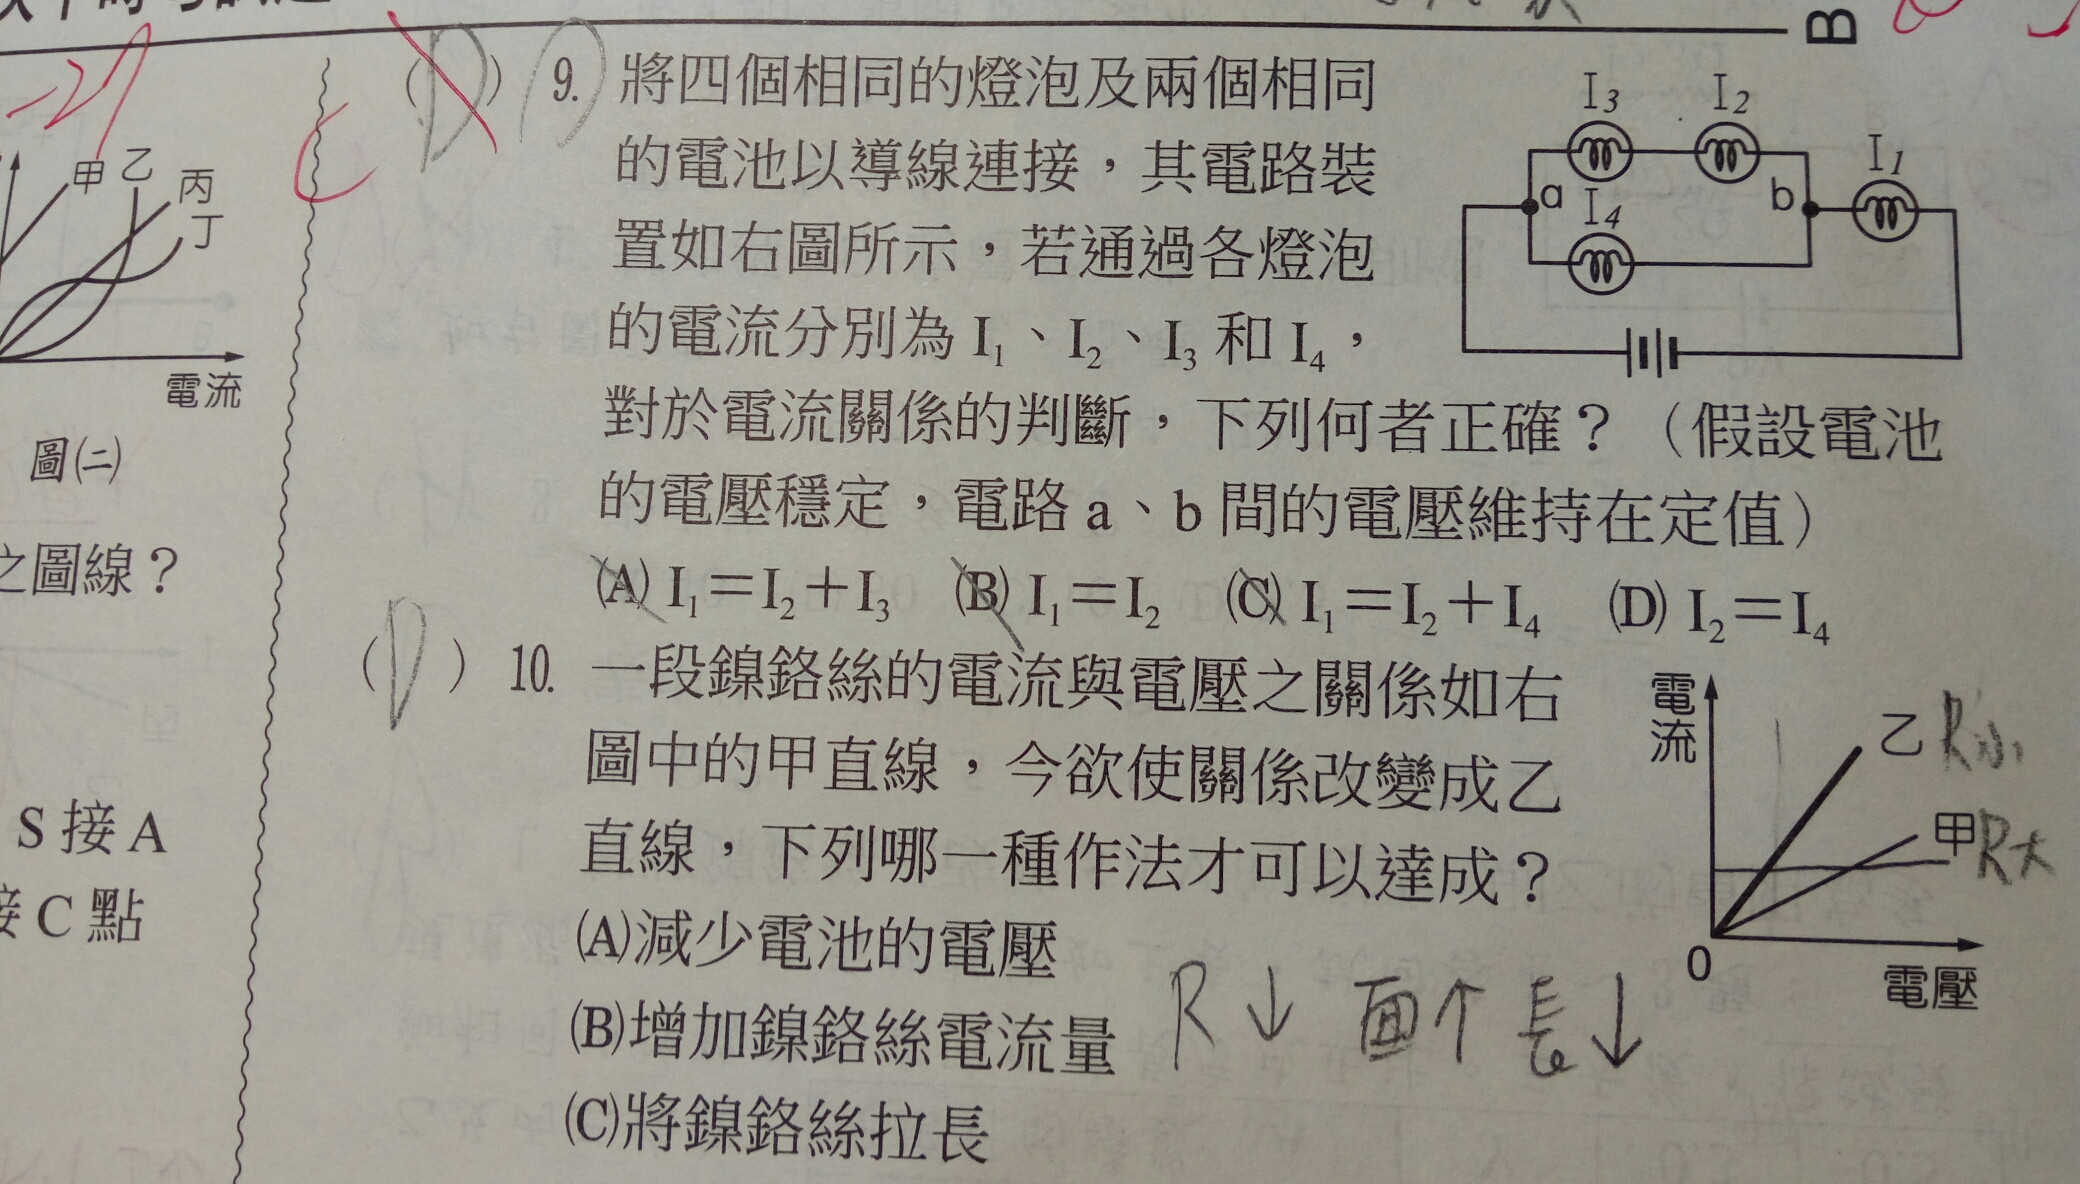 B
甲
乙
丙
丁
電流
圖㈡
之圖線？
S接A
接C點
(D) 9. 將四個相同的燈泡及兩個相同
的電池以導線連接，其電路裝
置如右圖所示，若通過各燈泡
的電流分別為 I₁、I₂、I₃ 和 I₄，
對於電流關係的判斷，下列何者正確？（假設電池
的電壓穩定，電路 a、b 間的電壓維持在定值）
(A) I₁＝I₂＋I₃ (B) I₁＝I₂ (C) I₁＝I₂＋I₄ (D) I₂＝I₄
C
I₃ I₂
I₁
a I₄ b
(D) 10. 一段鎳鉻絲的電流與電壓之關係如右
圖中的甲直線，今欲使關係改變成乙
直線，下列哪一種作法才可以達成？
(A)減少電池的電壓
(B)增加鎳鉻絲電流量
(C)將鎳鉻絲拉長
電流
乙 R小
甲 R大
0
電壓
R↓ 面↑ 長↓